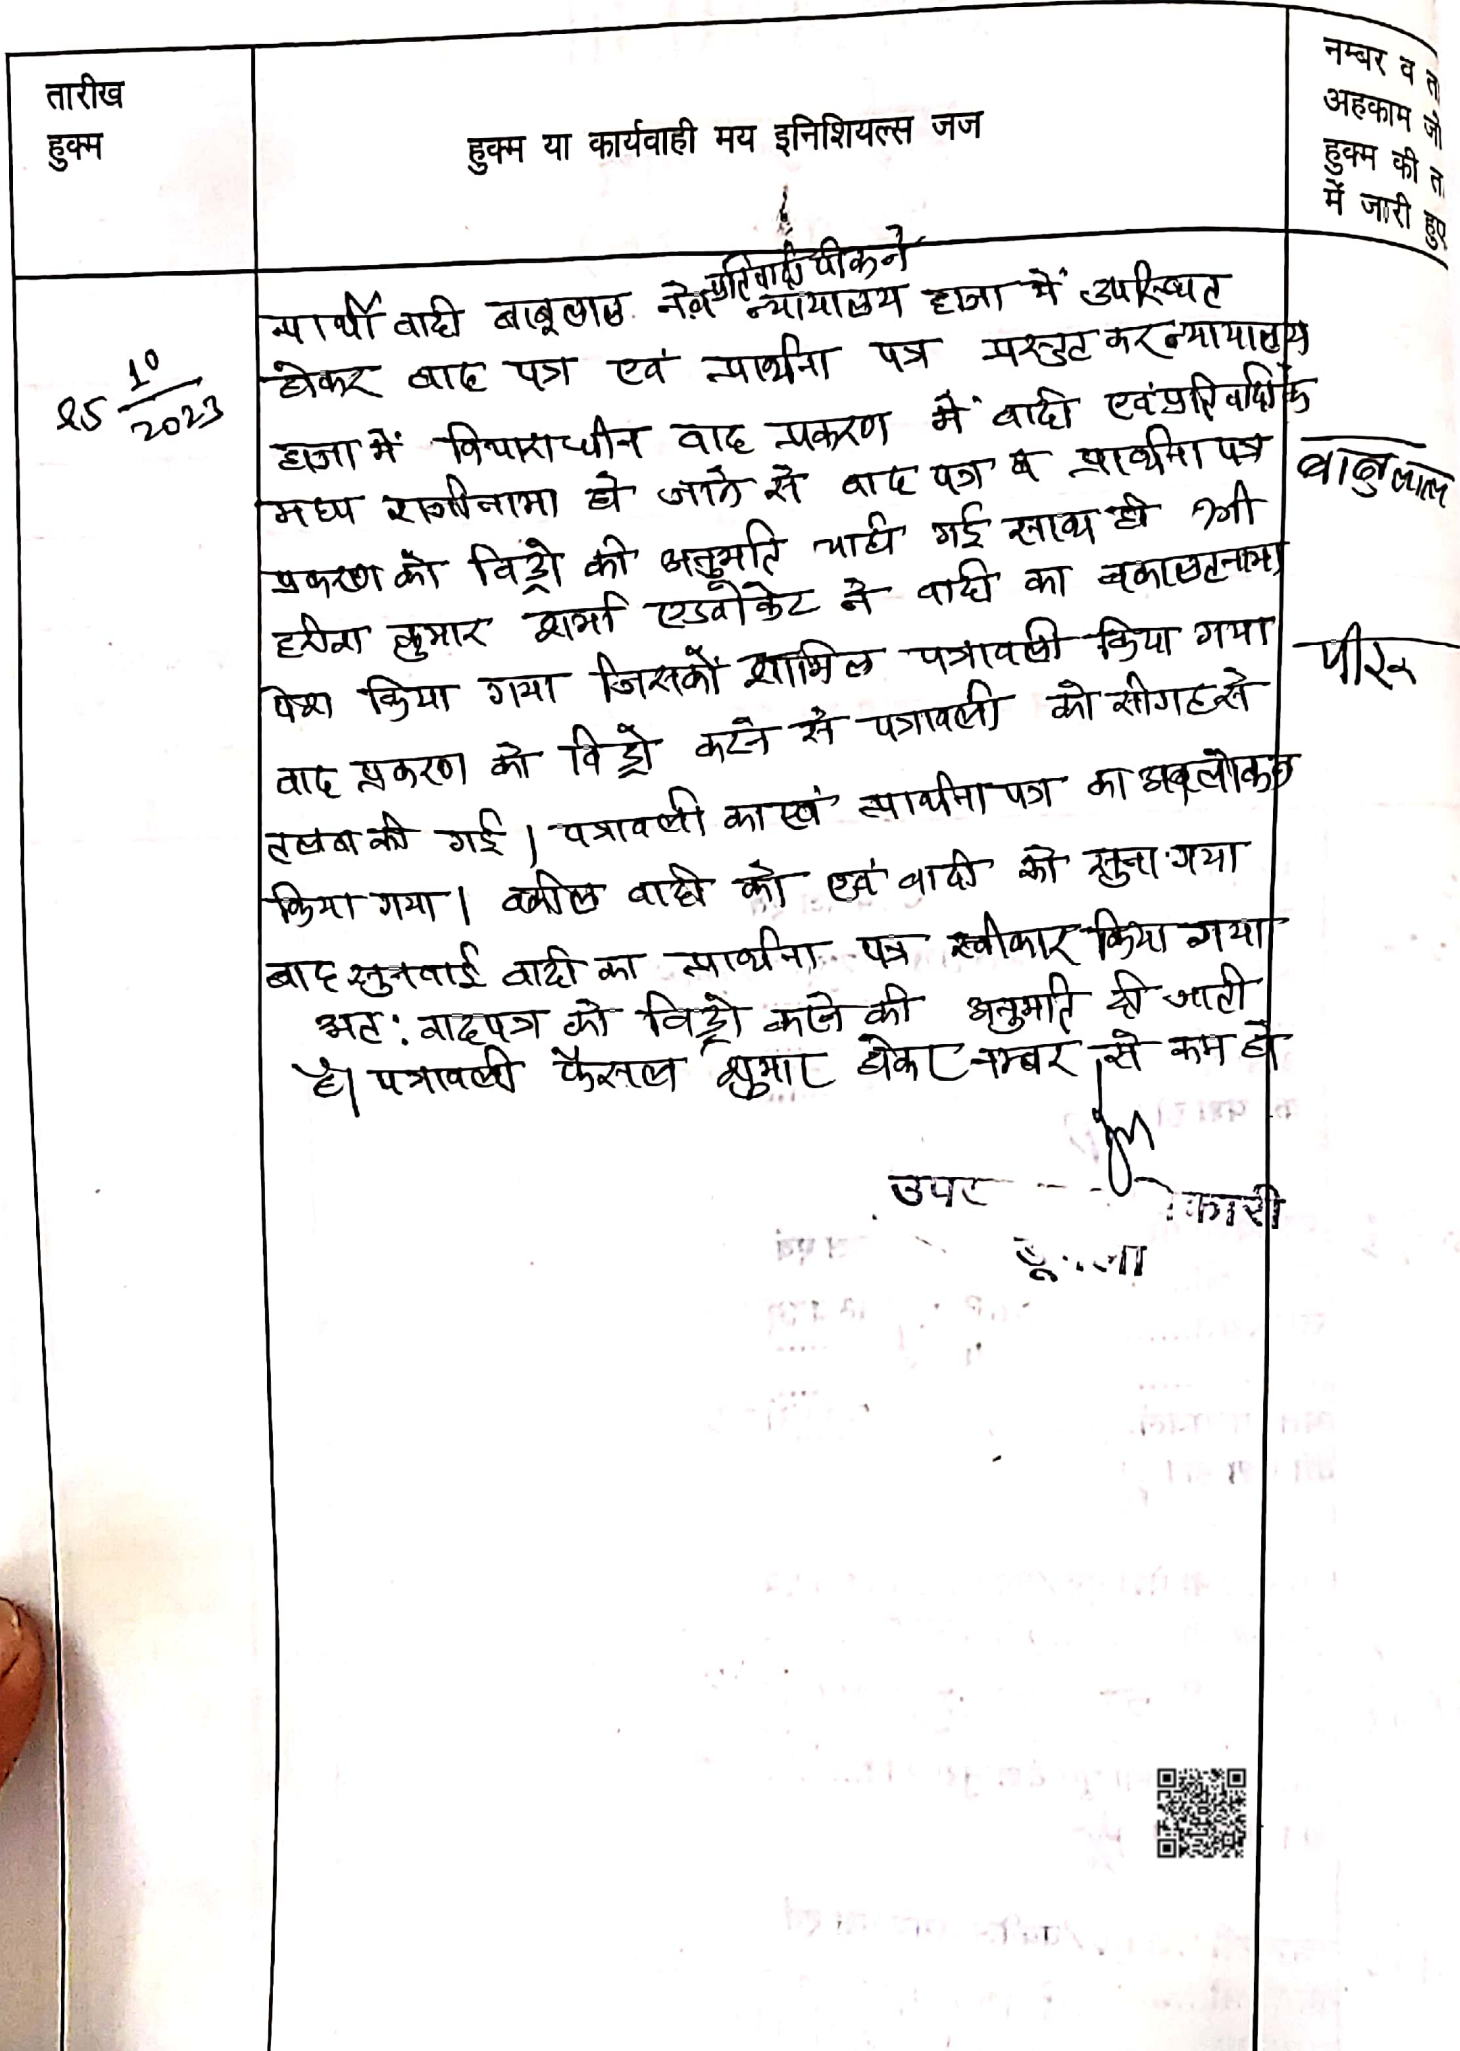 तारीख
हुक्म
हुक्म या कार्यवाही मय इनिशियल्स जज
नम्बर व ता
अहकाम जो
हुक्म की ता
में जारी हुए
25 10/2023
प्रतिवादी पीरू ने
प्रार्थी वादी बाबूलाल ने व न्यायालय हाजा में उपस्थित
होकर वाद पत्र एवं प्रार्थना पत्र प्रस्तुत कर न्यायालय
हाजा में विचाराधीन वाद प्रकरण में वादी एवं प्रतिवादी के
मध्य राजीनामा हो जाने से वाद पत्र व प्रार्थना पत्र
प्रकरण को विड्रो की अनुमति चाही गई साथ ही श्री
कुमार शर्मा एडवोकेट ने वादी का वकालतनामा
पेश किया गया जिसको शामिल पत्रावली किया गया
वाद प्रकरण को विड्रो करने से पत्रावली को सीगह से
तलब की गई। पत्रावली का एवं प्रार्थना पत्र का अवलोकन
किया गया। वकील वादी को एवं वादी को सुना गया
बाद सुनवाई वादी का प्रार्थना पत्र स्वीकार किया गया
अतः वादपत्र को विड्रो करने की अनुमति दी जाती
है। पत्रावली फैसल शुमार होकर नम्बर से कम हो
बाबुलाल
पीरू